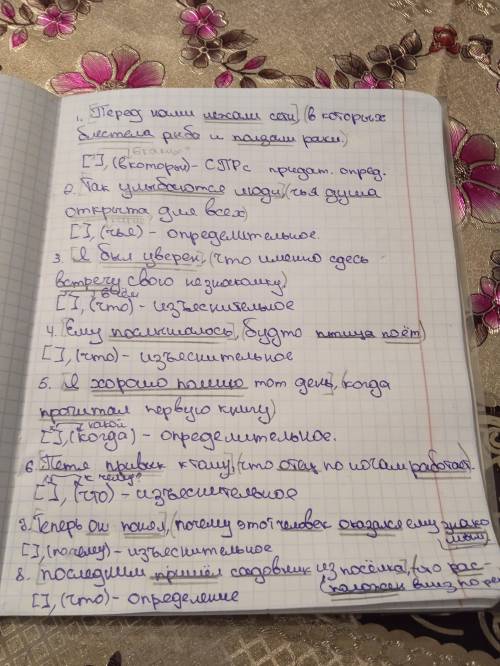 1. [Перед нами лежали сети], (в которых
блестела рыба и ползали раки)
каких?
[ ], (в которы) - СПП с придат. опред.
2. [Так улыбаются люди], (чья душа
открыта для всех)
[ ], (чья) - определительное.
3. [Я был уверен], (что именно здесь
встречу свою незнакомку)
в чём
[ ], (что) - изъеснительное
4. [Ему послышалось], (будто птица поёт)
[ ], (что) - изъеснительное
5. [Я хорошо помню тот день], (когда
прочитал первую книгу)
какой
[ ], (когда) - определительное.
6. [Петя привык к тому], (что отец по ночам работает.
к чему?
[ ], (что) - изъеснительное
Теперь он понял, (почему этот человек оказался ему знако
мым)
[ ], (почему) - изъеснительное
8. [последним пришёл садовник из посёлка], (что рас-
положен вниз по ре
[ ], (что) - определение